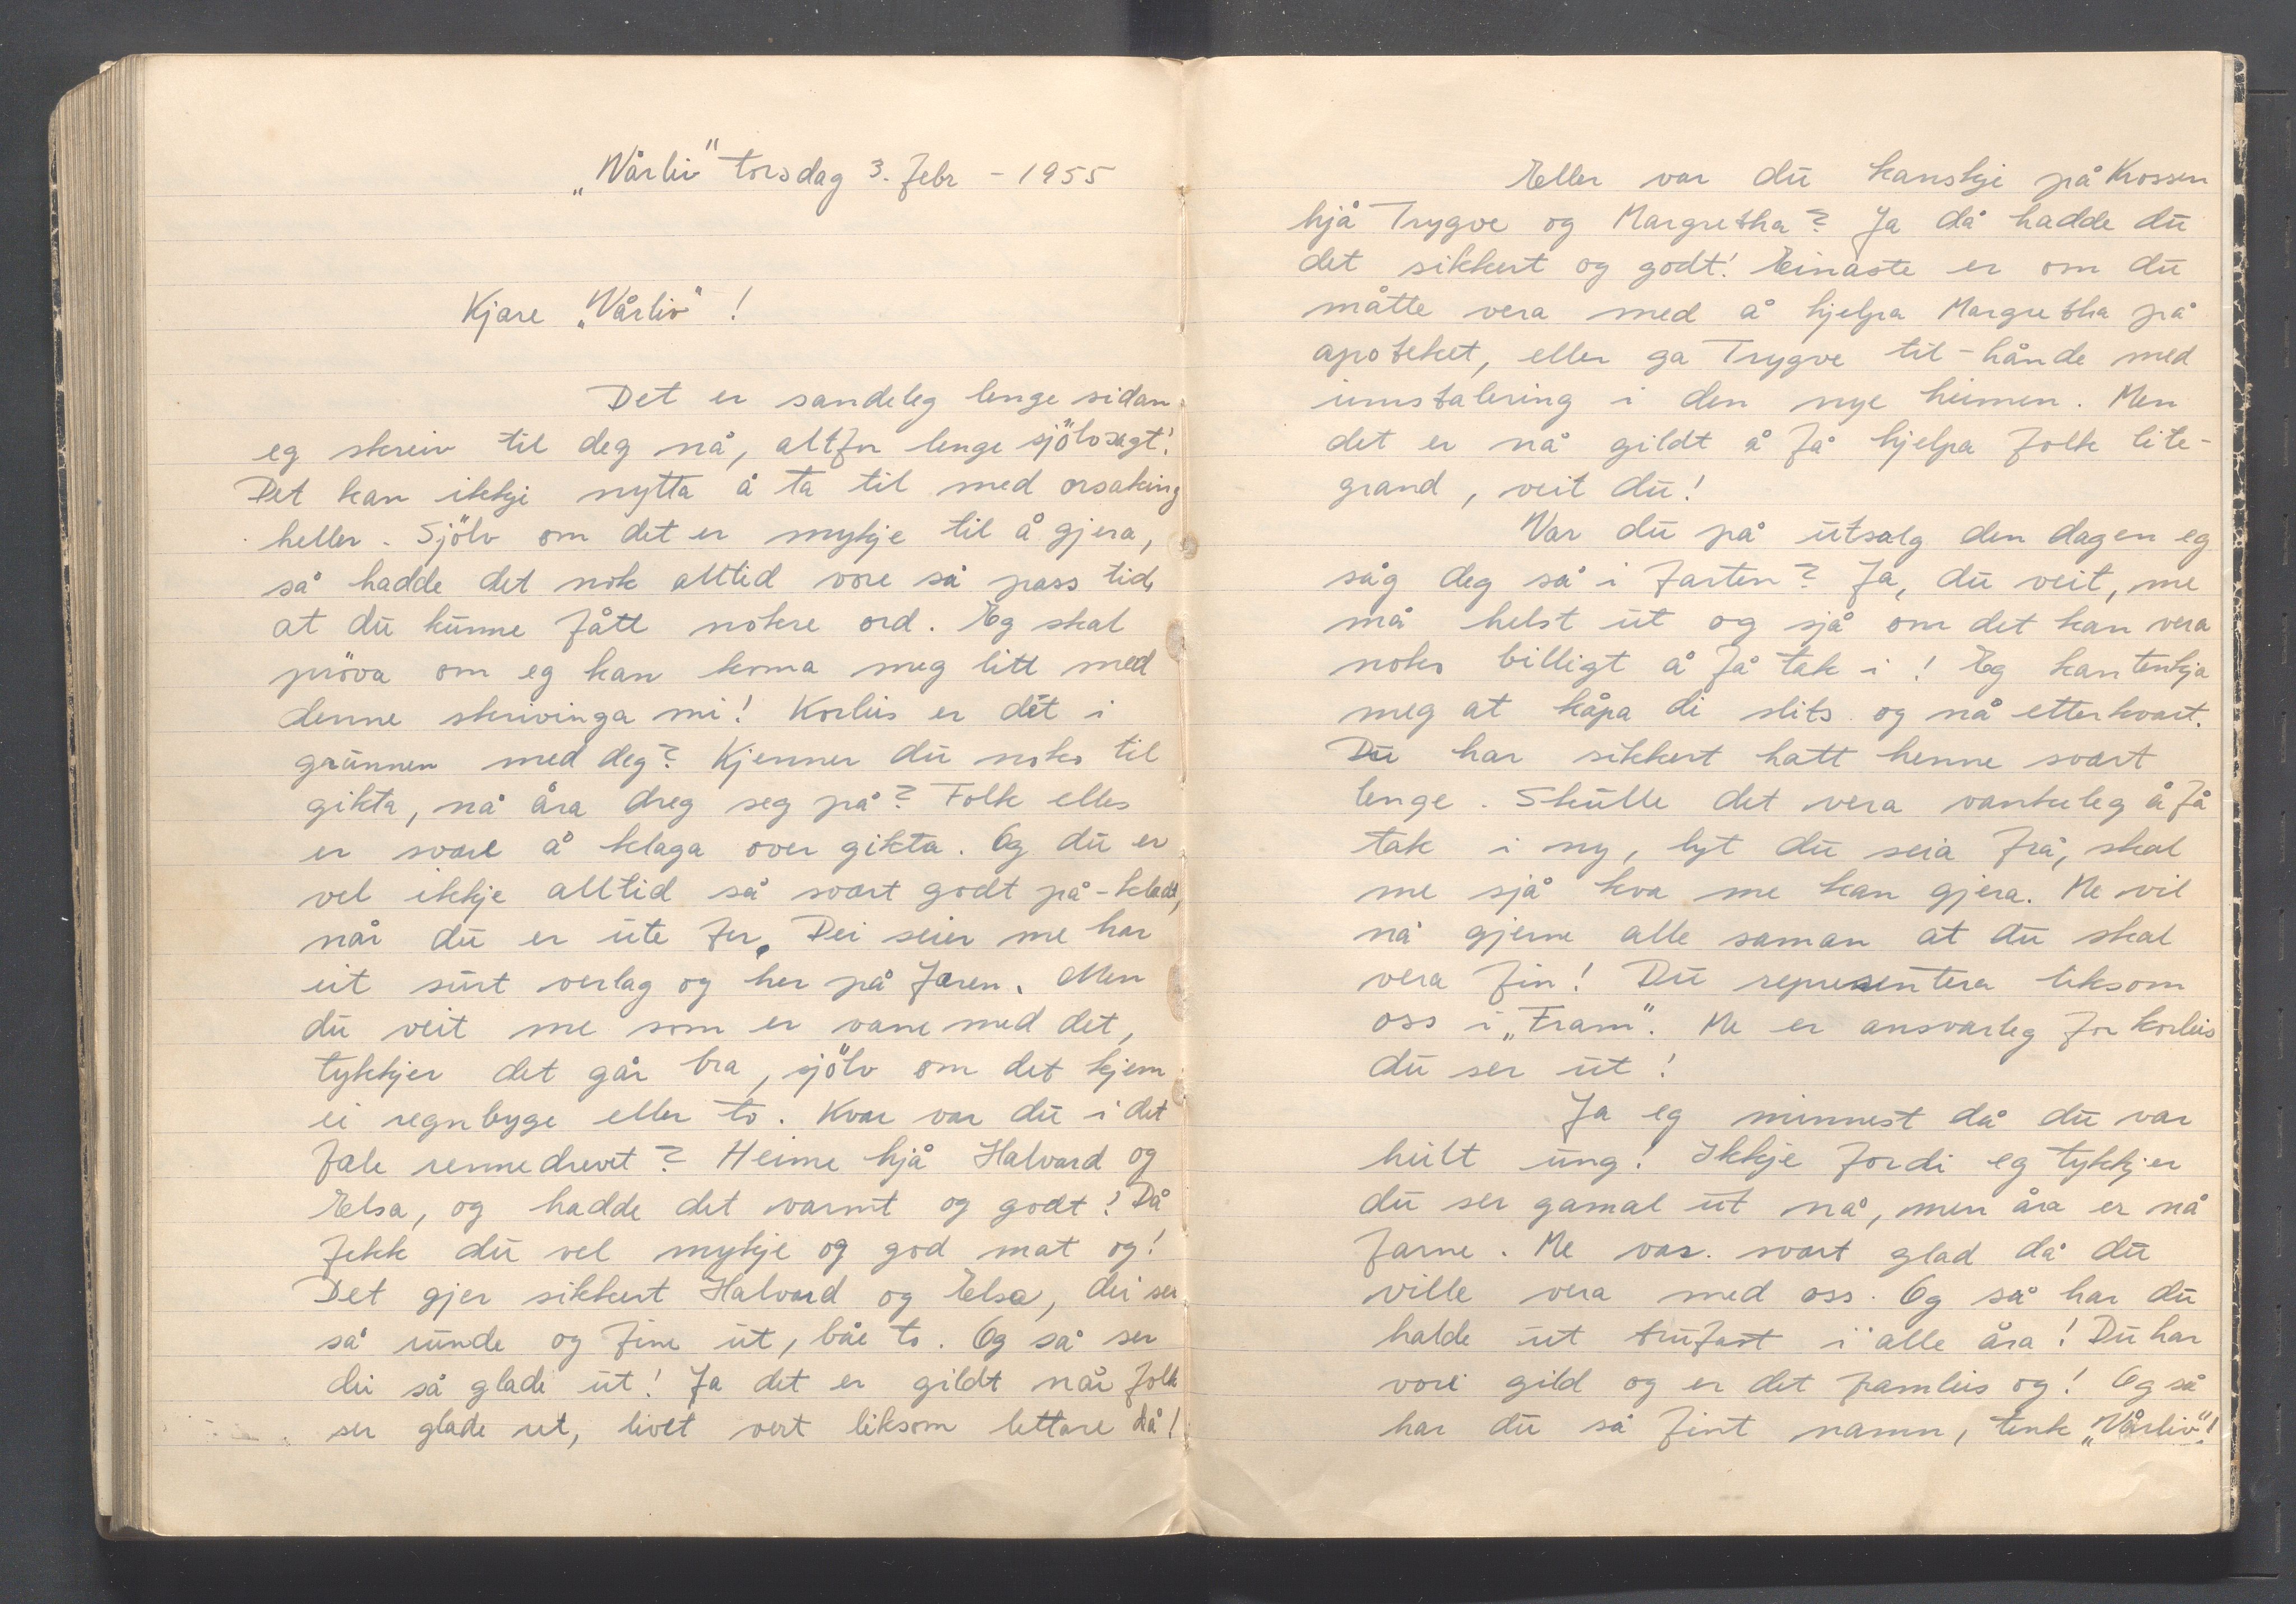 „Vårliv" torsdag 3. Febr - 1955
Kjære „Vårliv" !
Det er sandeleg lenge sidan
eg skreiv til deg nå, altfor lenge sjölvsagt!
Det kan ikkje nytta å ta til med orsaking
heller. Sjölv om det er mykje til å gjera,
så hadde det nok alltid vore så pass tid,
at du kunne fått nokre ord. Eg skal
pröva om eg kan koma meg litt med
denne skrivinga mi! Korleis er dèt i
grunnen med deg? Kjenner du noko til
gikta, nå åra dreg seg på? Folk elles
er svære å klaga over gikta. Og du er
vel ikkje alltid så svært godt på-kledd,
når du er ute fer. Dei seier me har
eit surt verlag og her på Jæren. Men
du veit me som er vane med det,
tykkjer det går bra, sjölv om det kjem
ei regnbyge eller to. Kvar var du i det
fæle rennedrevet? Heime hjå Halvard og
Elsa, og hadde det varmt og godt? Då
fekk du vel mykje og god mat og!
Det gjer sikkert Halvard og Elsa, dei ser
så runde og fine ut, båe to. Og så ser
dei så glade ut! Ja det er gildt når folk
ser glade ut, livet vert liksom lettare då!
Eller var du kanskje på Krossen
hjå Trygve og Margretha? Ja då hadde du
det sikkert og godt! Einaste er om du
måtte vera med å hjelpa Margretha på
apoteket, eller ga Trygve til-hånde med
innstalering i den nye heimen. Men
det er nå gildt å få hjelpa folk lite-
grand, veit du!
Var du på utsalg den dagen eg
såg deg så i farten? Ja, du veit, me
må helst ut og sjå om det kan vera
noko billigt å få tak i! Eg kan tenkja
meg at kåpa di slits og nå etterkvart.
Du har sikkert hatt henne svært
lenge. Skulle det vera vanskeleg å få
tak i ny, lyt du seia frå, skal
me sjå kva me kan gjera. Me vil
nå gjerne alle saman at du skal
vera fin! Du representera liksom
oss i „Fram". Me er ansvarleg for korleis
du ser ut!
Ja eg minnest då du var
heilt ung! Ikkje fordi eg tykkjer
du ser gamal ut nå, men åra er nå
farne. Me var svært glad då du
ville vera med oss. Og så har du
halde ut trufast i alle åra! Du har
vore gild og er det framleis og! Og så
har du så fint namn, tenk „Vårliv"!